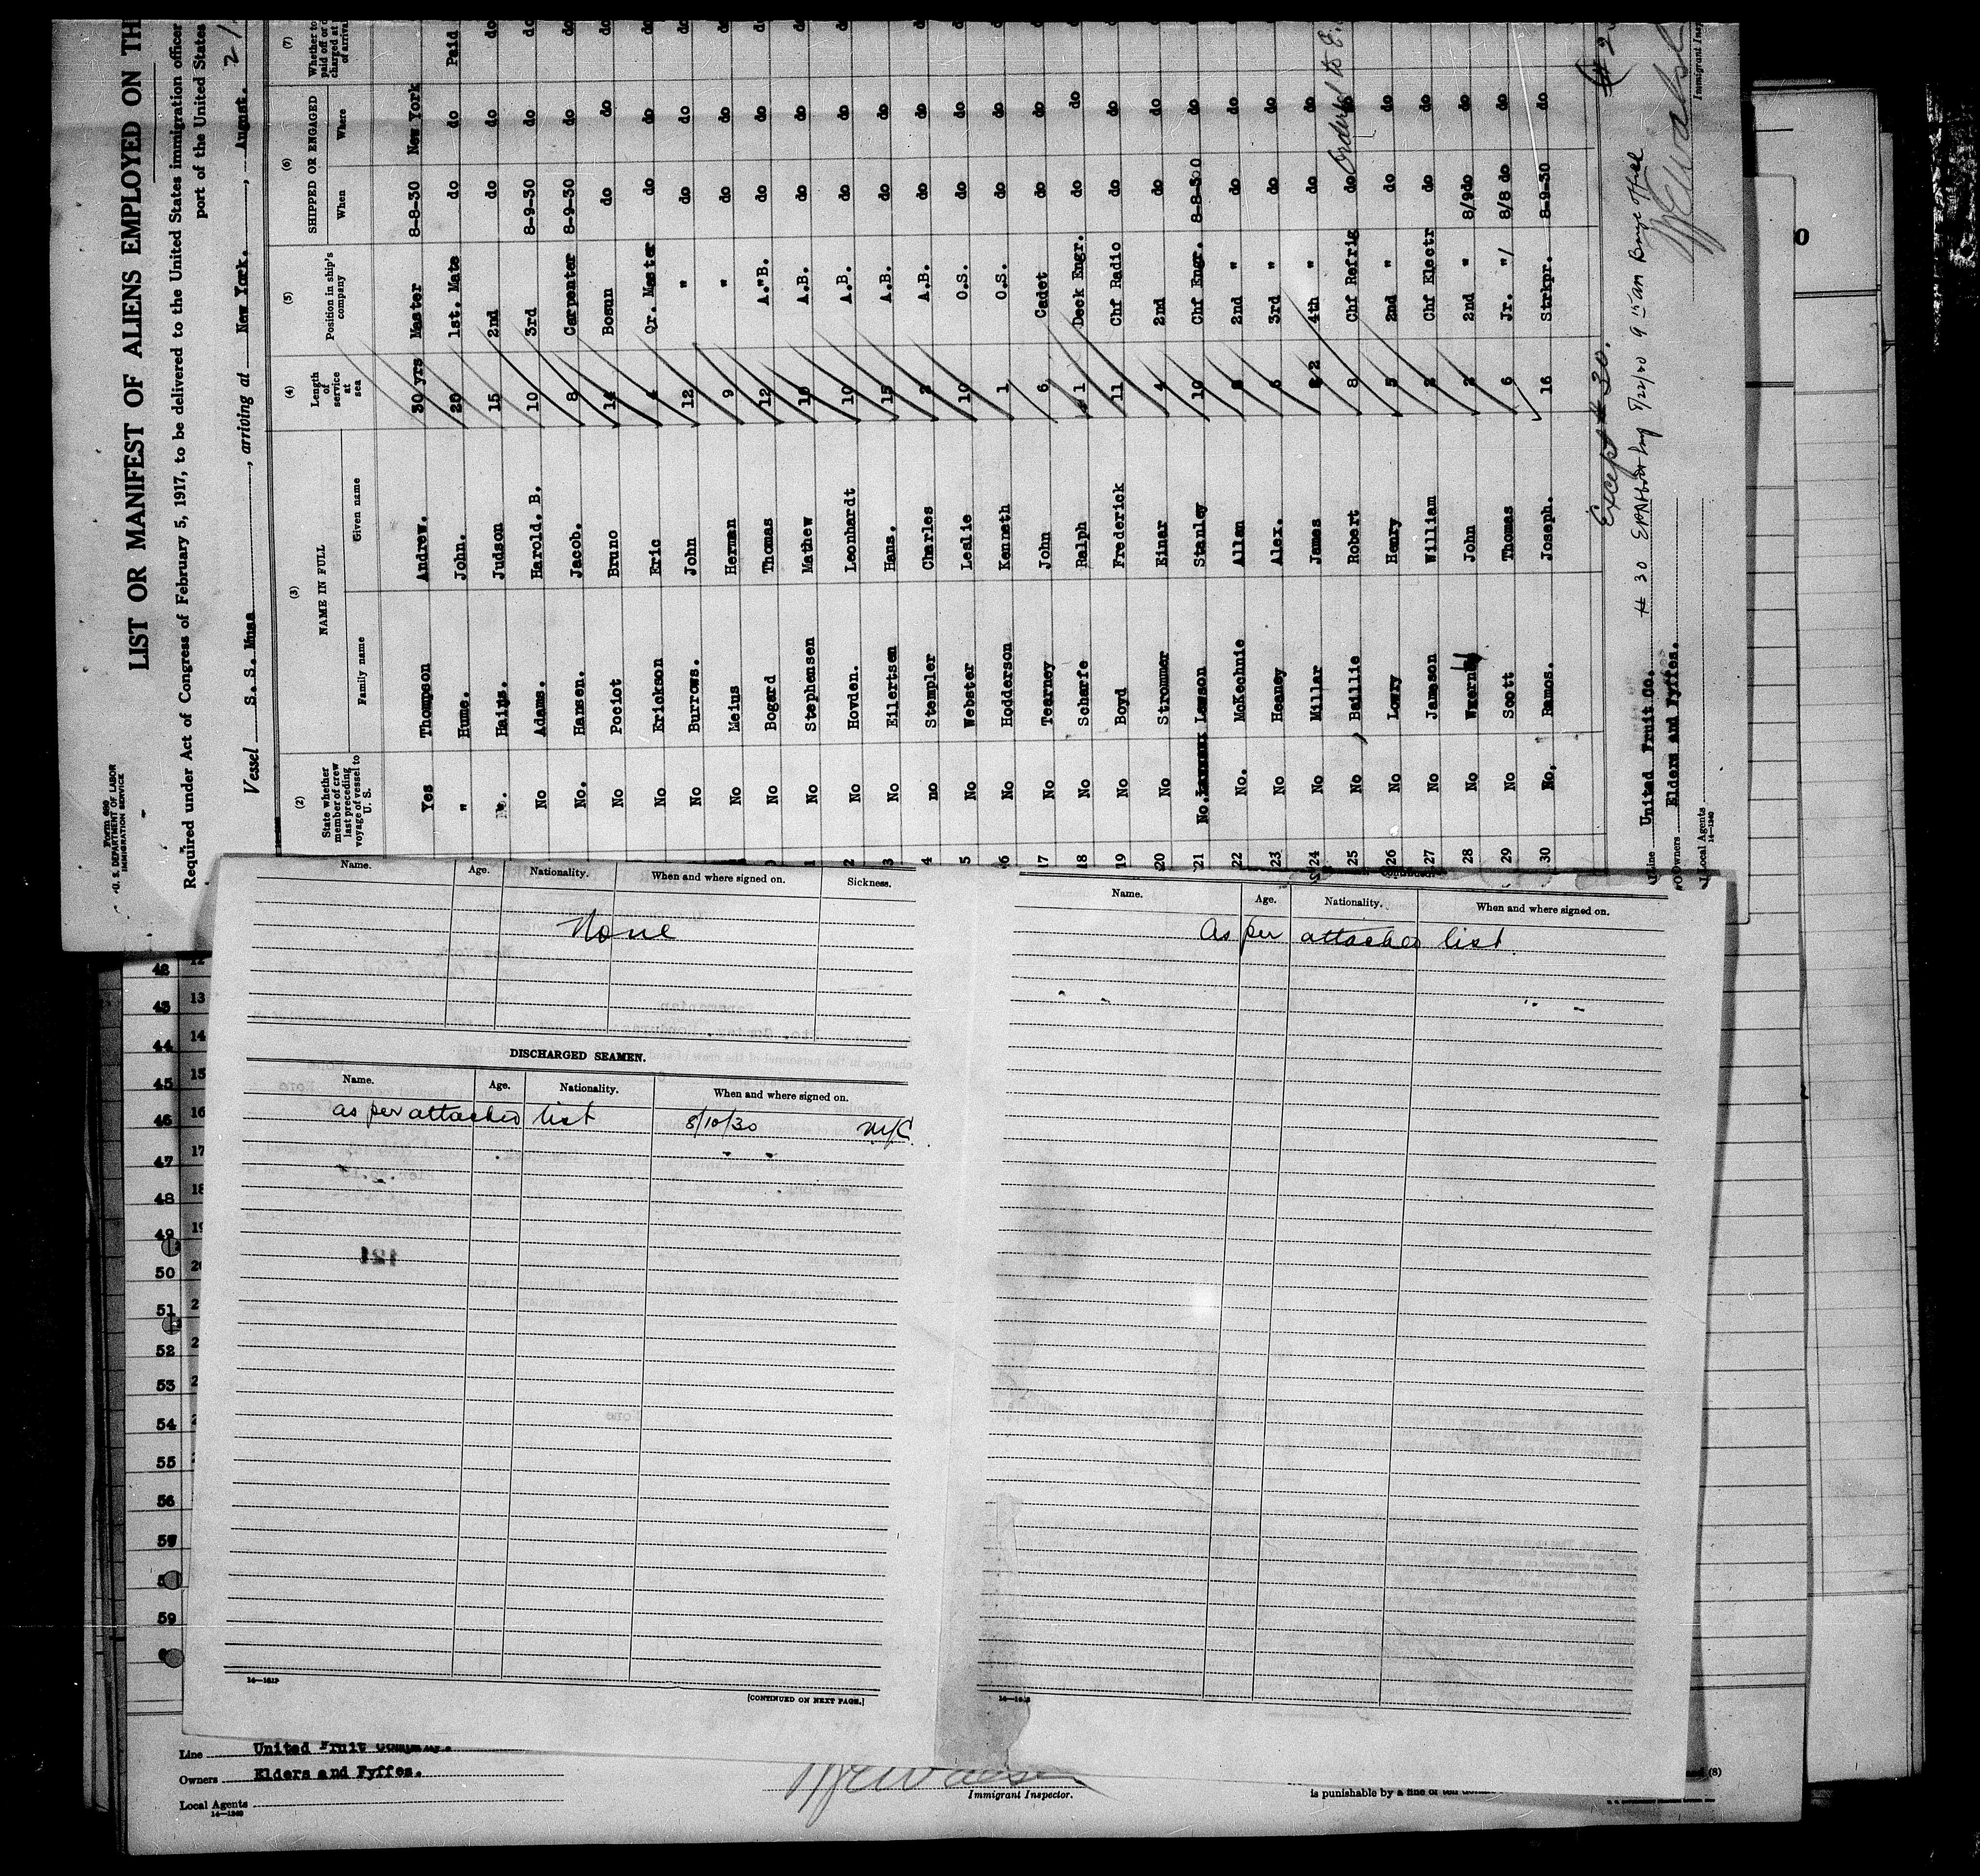 Form 680
U. S. DEPARTMENT OF LABOR
IMMIGRATION SERVICE
LIST OR MANIFEST OF ALIENS EMPLOYED ON TH
Required under Act of Congress of February 5, 1917, to be delivered to the United States immigration officer
port of the United States
Vessel S. S. Musa, arriving at New York., August. 21
(2) (3) (4) (5) (6) (7)
State whether member of crew last preceding voyage of vessel to U. S. NAME IN FULL Length of service at sea Position in ship's company SHIPPED OR ENGAGED Whether to
Family name Given name When Where
Yes Thompson Andrew. 30 yrs Master 8-8-30 New York
" Hume. John. 20 1st. Mate do do Paid
Judson 15 2nd do do do
No Adams. Harold. B. 10 3rd 8-9-30 do do
No. Hansen. Jacob. 8 Carpenter 8-9-30 do do
No Pociot Bruno 14 Bosun do do do
No Erickson Eric 4 Qr. Master do do do
No Burrows. John 12 " do do do
No Meius Herman 9 " do do do
No Bogard Thomas 12 A.B. do do do
No Stephensen Mathew A.B. do do do
2 No Hovden. Leonhardt 10 A.B. do do do
3 No Eilertsen Hans. 15 A.B. do do do
4 no Stempler Charles A.B. do do do
5 No Webster Leslie 10 O.S. do do do
16 No Hodderson Kenneth 1 O.S. do do do
17 No Tearney John 6 Cadet do do do
18 No Scharfe Ralph 1 Deck Engr. do do do
19 No Boyd Frederick 11 Chf Radio do do do
20 No Strommer Einar 4 2nd do do do
21 No. Lawson Stanley 10 Chf Engr. 8-8-30 do do
22 No. McKechnie Allan 2nd " do do do
23 No Heaney Alex. 6 3rd " do do do
24 No Millar James 2 4th " do do do
25 No Baillie Robert 8 Chf Refrig do do Ordered to E.
26 No Lowry Henry 5 2nd " do do do
27 No Jameson William 2 Chf Electr do do do
28 No John 2 2nd " 8/9do do do
29 No Scott Thomas 6 Jr. " 8/8 do do do
30 No. Ramos. Joseph. 16 Strkpr. 8-9-30 do do
Except # 30.
Line United Fruit Co.
# 30 9 15 am Barge Office
Owners Elders and Fyffes.
Local Agents
14—1240
Immigrant Insp
Name. Age. Nationality. When and where signed on. Sickness.
None
DISCHARGED SEAMEN.
Name. Age. Nationality. When and where signed on.
as per attached list 8/10/30 NYC
[CONTINUED ON NEXT PAGE.]
Name. Age. Nationality. When and where signed on.
As per attached list
42 12
43 13
44 14
45 15
46 16
47 17
48 18
49 19
50
51
52
53
54
55
56
57
59
Line United Fruit Company.
Owners Elders and Fyffes.
Local Agents
14—1240
Immigrant Inspector.
(8)
is punishable by a fine of ten